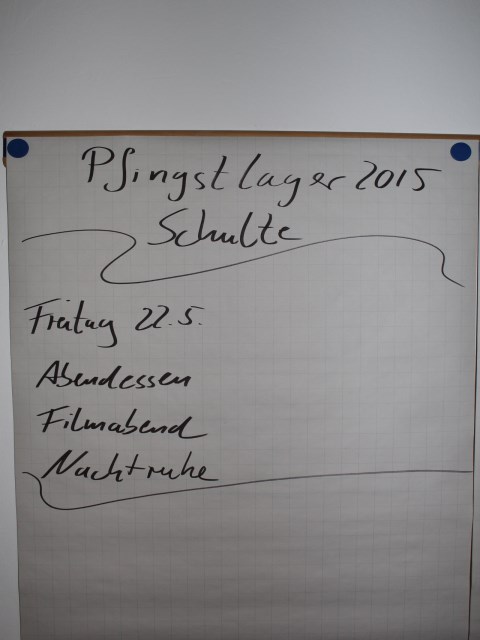 Pfingstlager 2015
Schulte
Freitag 22.5.
Abendessen
Filmabend
Nachtruhe